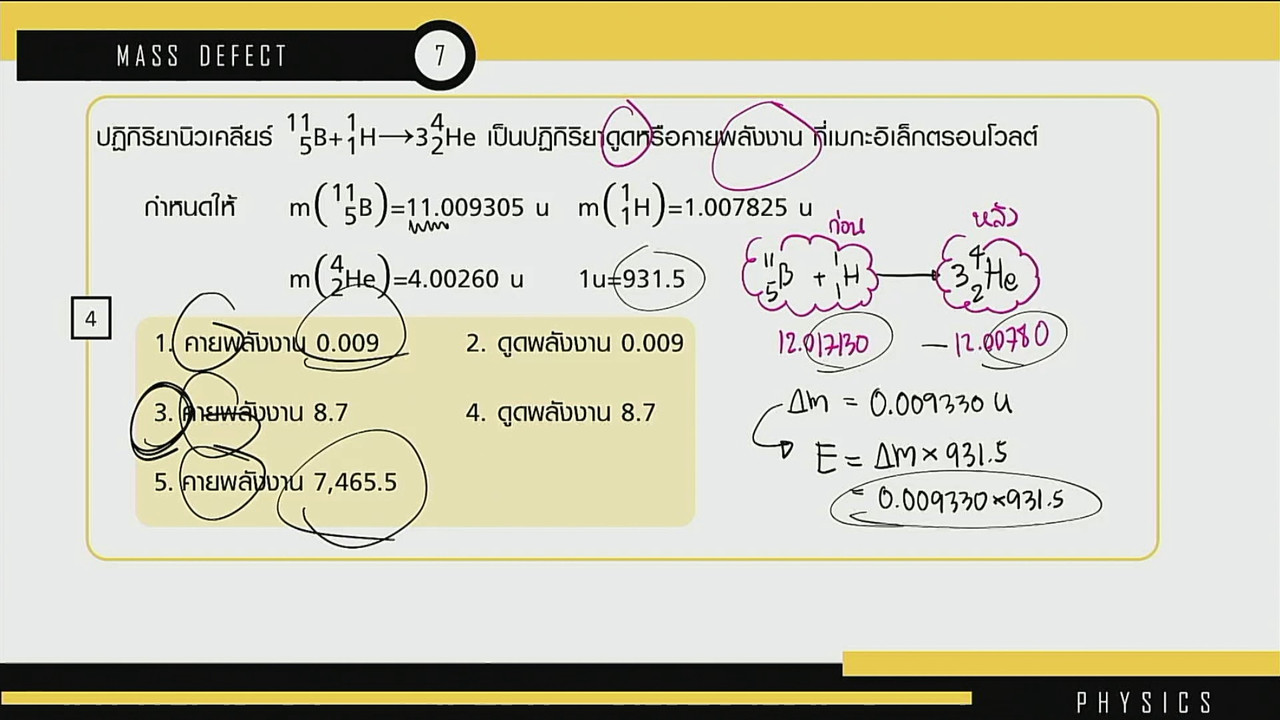 MASS DEFECT 7
ปฏิกิริยานิวเคลียร์ ¹¹₅B+¹₁H→3⁴₂He เป็นปฏิกิริยาดูดหรือคายพลังงาน กี่เมกะอิเล็กตรอนโวลต์
กำหนดให้ m(¹¹₅B)=11.009305 u m(¹₁H)=1.007825 u
m(⁴₂He)=4.00260 u 1u=931.5
ก่อน หลัง
¹¹₅B + ¹₁H → 3⁴₂He
12.017130 — 12.00780
4
1. คายพลังงาน 0.009 2. ดูดพลังงาน 0.009
3. คายพลังงาน 8.7 4. ดูดพลังงาน 8.7
5. คายพลังงาน 7,465.5
Δm = 0.009330 u
E = Δm × 931.5
= 0.009330×931.5
PHYSICS